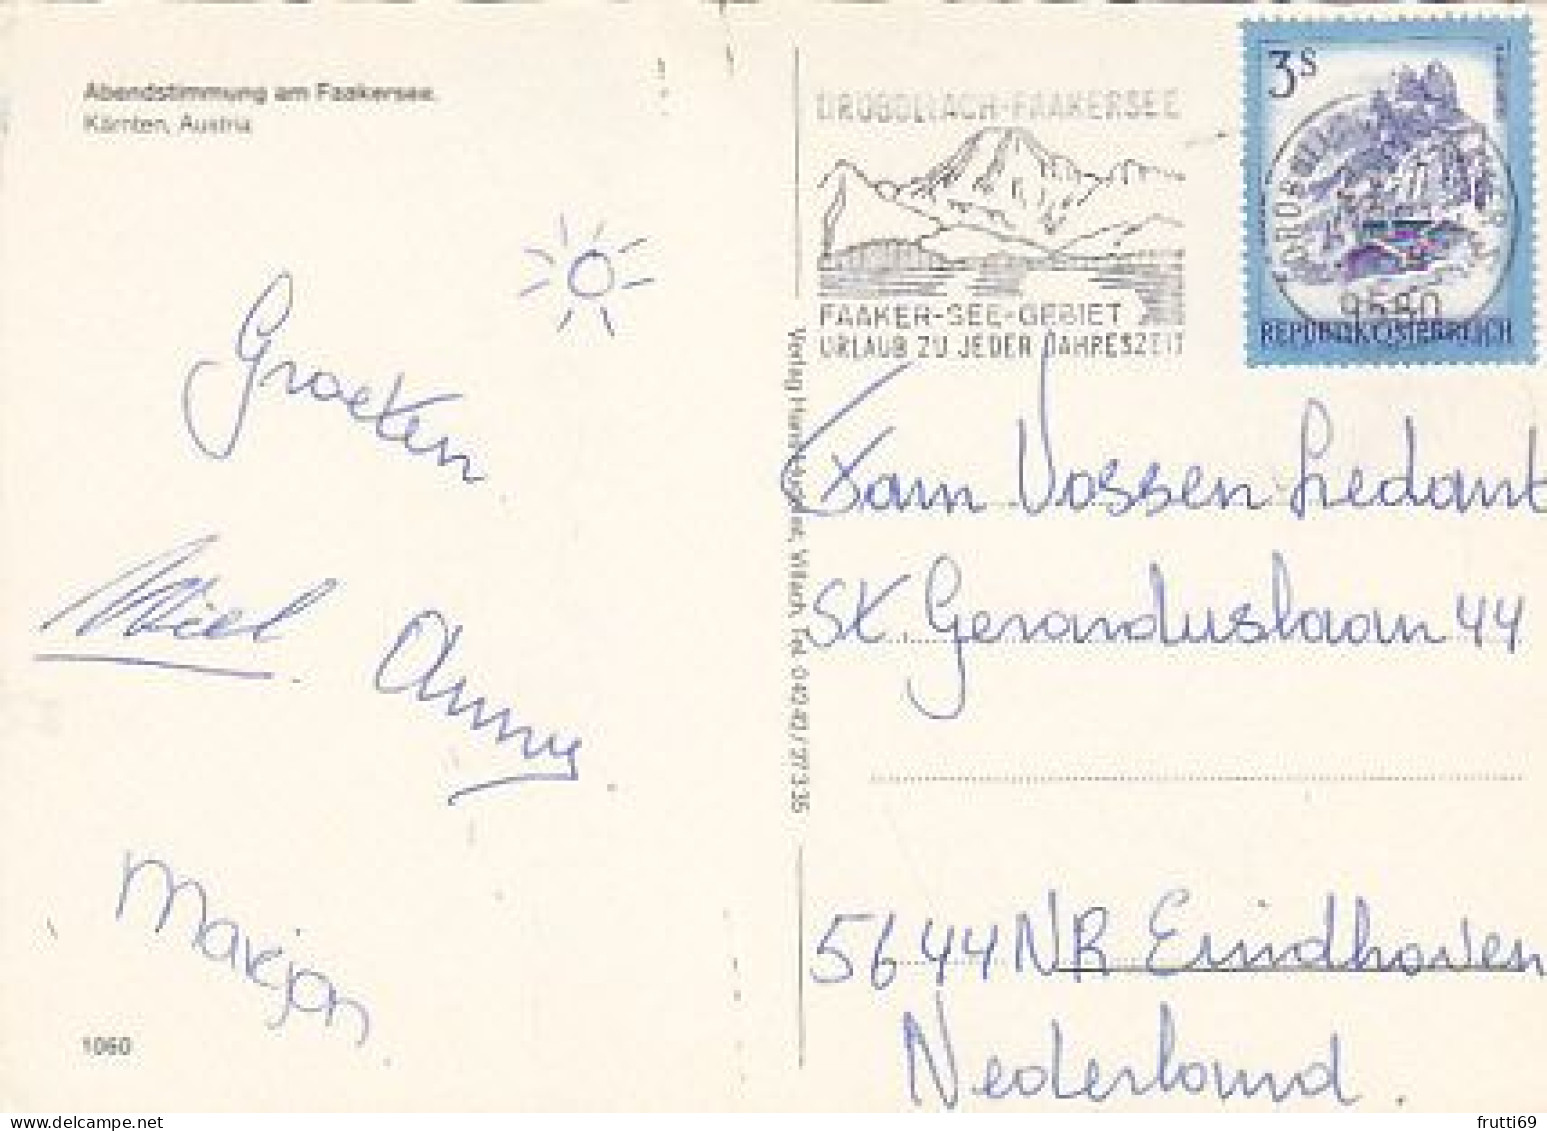 Abendstimmung am Faakersee.
Kärnten, Austria
Groeten.
Miel.
Anny.
Marjan.
1060
Verlag
Villach, Tel. 04242/27335
DROBOLLACH-FAAKERSEE
FAAKER-SEE-GEBIET
URLAUB ZU JEDER JAHRESZEIT
3S
9580
REPUBLIK ÖSTERREICH
Fam Vossen Liedant
St. Gerarduslaan 44
5644 NR Eindhoven
Nederland.
frutti69